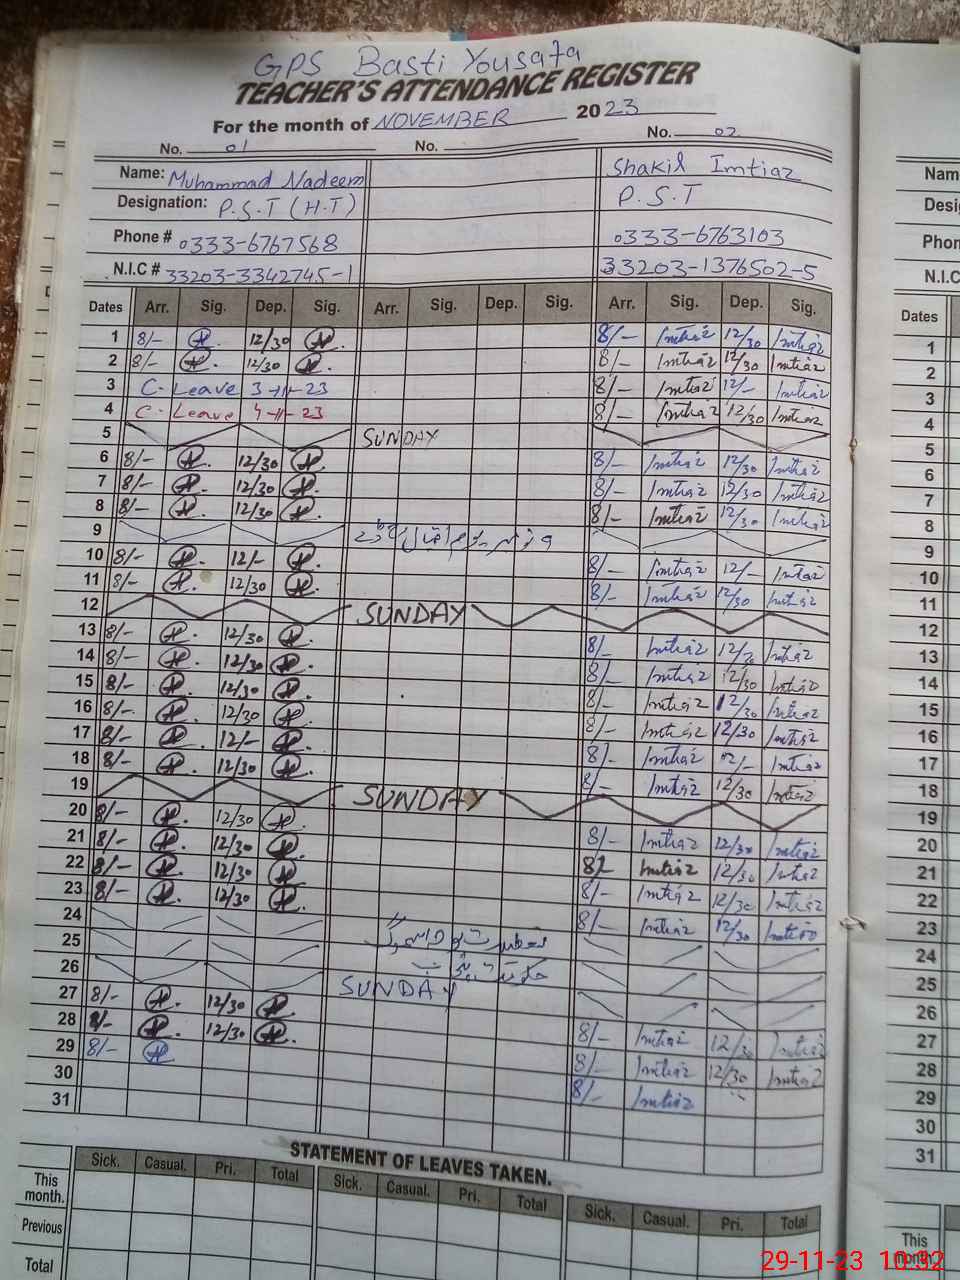 GPS Basti Yousafa
TEACHER'S ATTENDANCE REGISTER
For the month of NOVEMBER 2023
No. 01 No. No. 02
Name: Muhammad Nadeem Shakil Imtiaz
Designation: P.S.T (H.T) P.S.T
Phone # 0333-6767568 0333-6763103
N.I.C # 33203-3342745-1 33203-1376502-5
Dates Arr. Sig. Dep. Sig. Arr. Sig. Dep. Sig. Arr. Sig. Dep. Sig.
1 8/- 12/30 8/- Imtiaz 12/30 Imtiaz
2 8/- 12/30 8/- Imtiaz 12/30 Imtiaz
3 C. Leave 3-11-23 8/- Imtiaz 12/- Imtiaz
4 C. Leave 4-11-23 8/- Imtiaz 12/30 Imtiaz
5 SUNDAY
6 8/- 12/30 8/- Imtiaz 12/30 Imtiaz
7 8/- 12/30 8/- Imtiaz 12/30 Imtiaz
8 8/- 12/30 8/- Imtiaz 12/30 Imtiaz
9 اقبال
10 8/- 12/- 8/- Imtiaz 12/- Imtiaz
11 8/- 12/30 8/- Imtiaz 12/30 Imtiaz
12 SUNDAY
13 8/- 12/30 8/- Imtiaz 12/30 Imtiaz
14 8/- 12/30 8/- Imtiaz 12/30 Imtiaz
15 8/- 12/30 8/- Imtiaz 12/30 Imtiaz
16 8/- 12/30 8/- Imtiaz 12/30 Imtiaz
17 8/- 12/- 8/- Imtiaz 12/- Imtiaz
18 8/- 12/30 8/- Imtiaz 12/30 Imtiaz
19 SUNDAY
20 8/- 12/30 8/- Imtiaz 12/30 Imtiaz
21 8/- 12/30 8/- Imtiaz 12/30 Imtiaz
22 8/- 12/30 8/- Imtiaz 12/30 Imtiaz
23 8/- 12/30 8/- Imtiaz 12/30 Imtiaz
24
25
26 SUNDAY
27 8/- 12/30 8/- Imtiaz 12/30 Imtiaz
28 8/- 12/30 8/- Imtiaz 12/30 Imtiaz
29 8/- 8/- Imtiaz
30
31
STATEMENT OF LEAVES TAKEN.
Sick. Casual. Pri. Total Sick. Casual. Pri. Total Sick. Casual. Pri. Total
This month.
Previous
Total
N.I.C
Dates
1
2
3
4
5
6
7
8
9
10
11
12
13
14
15
16
17
18
19
20
21
22
23
24
25
26
27
28
29
30
31
This month.
29-11-23 10:32